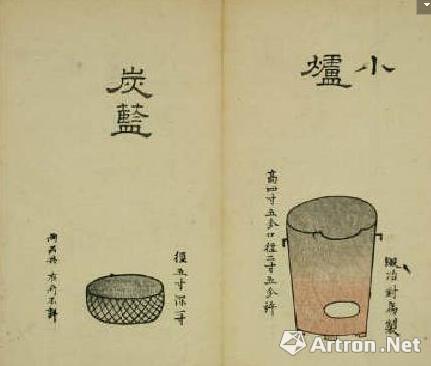 小爐
鍛冶對馬製
高四寸五分口徑三寸五分許
炭藍
徑五寸深二寸
Artron.Net